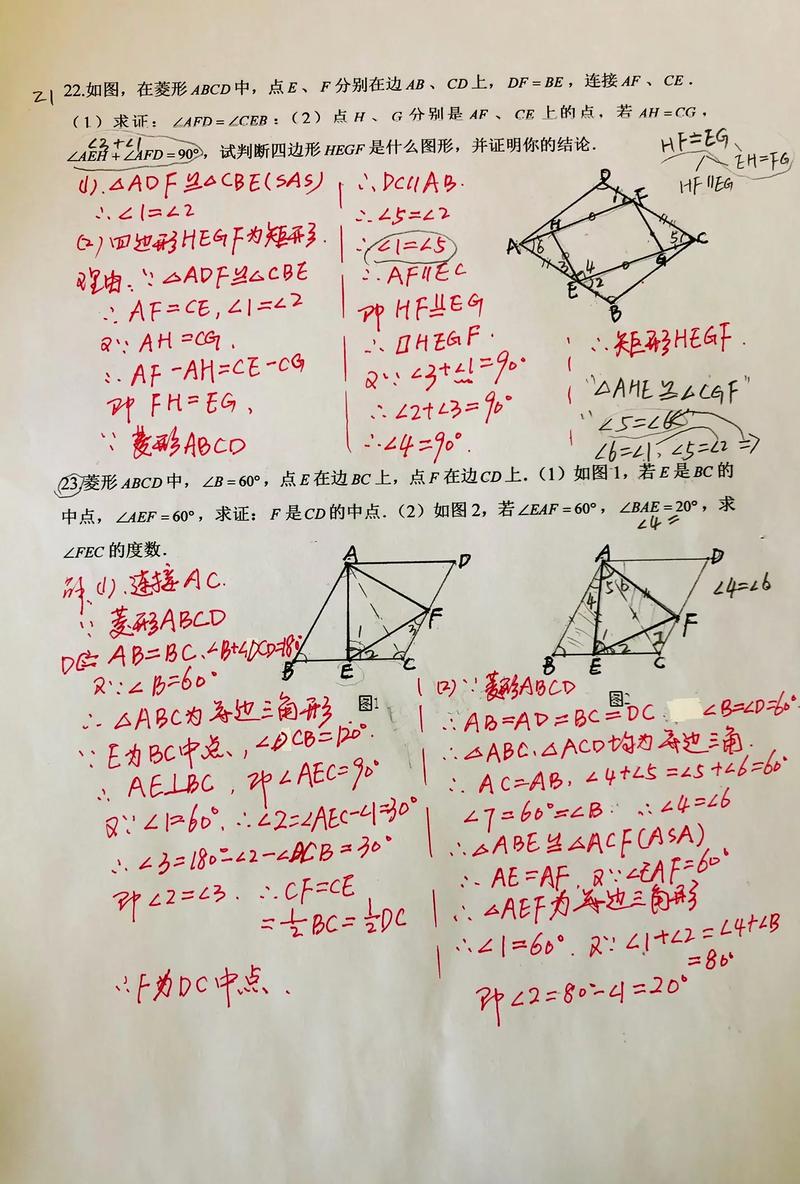 21
22.如图，在菱形ABCD中，点E、F分别在边AB、CD上，DF=BE，连接AF、CE．
（1）求证：∠AFD=∠CEB；（2）点H、G分别是AF、CE上的点，若AH=CG，
∠3+∠1
∠AEH+∠AFD=90°，试判断四边形HEGF是什么图形，并证明你的结论．
HF=EG、
EH=FG
HF∥EG
(1).△ADF≌△CBE(SAS)
∴∠1=∠2
(2)四边形HEGF为矩形.
理由：∵△ADF≌△CBE
∴AF=CE,∠1=∠2
又∵AH=CG.
∴AF-AH=CE-CG
即FH=EG、
∵菱形ABCD
∴DC∥AB.
∴∠5=∠2
∴∠1=∠5
∴AF∥EC
即HF∥EG
∴▱HEGF.
又∵∠3+∠1=90°
∴∠2+∠3=90°
∴∠4=90°.
D
1
F
H
A
6
5
C
3
4
G
E
2
B
∴矩形HEGF.
"△AHE≌△CGF"
∠5=∠6
∠6=∠1,∠5=∠2⇒
23.菱形ABCD中，∠B=60°，点E在边BC上，点F在边CD上．（1）如图1，若E是BC的
中点，∠AEF=60°，求证：F是CD的中点．（2）如图2，若∠EAF=60°，∠BAE=20°，求
∠4=
∠FEC的度数．
(1).连接AC.
∵菱形ABCD
AB=BC、∠B+∠DCB=180°
又∵∠B=60°
∴△ABC为等边三角形.
∵E为BC中点、,∠DCB=120°.
∴AE⊥BC，即∠AEC=90°
又∵∠1=60°.∴∠2=∠AEC-∠1=30°
∴∠3=180°-∠2-∠DCB=30°
即∠2=∠3.∴CF=CE
=½BC=½DC
∴F为DC中点.
A
D
F
3
1
2
B
E
C
图1
A
D
5
6
4
F
1
2
7
B
E
C
图2
∠4=∠6
(2)∵菱形ABCD
∴AB=AD=BC=DC ∠B=∠D=60°
∴△ABC、△ACD均为等边三角.
∴AC=AB,∠4+∠5=∠5+∠6=60°
∠7=60°=∠B ∴∠4=∠6
∴△ABE≌△ACF(ASA)
∴AE=AF,又∵∠EAF=60°
∴△AEF为等边三角形
∴∠1=60°.又∵∠1+∠2=∠4+∠B
=80°
即∠2=80°-∠1=20°